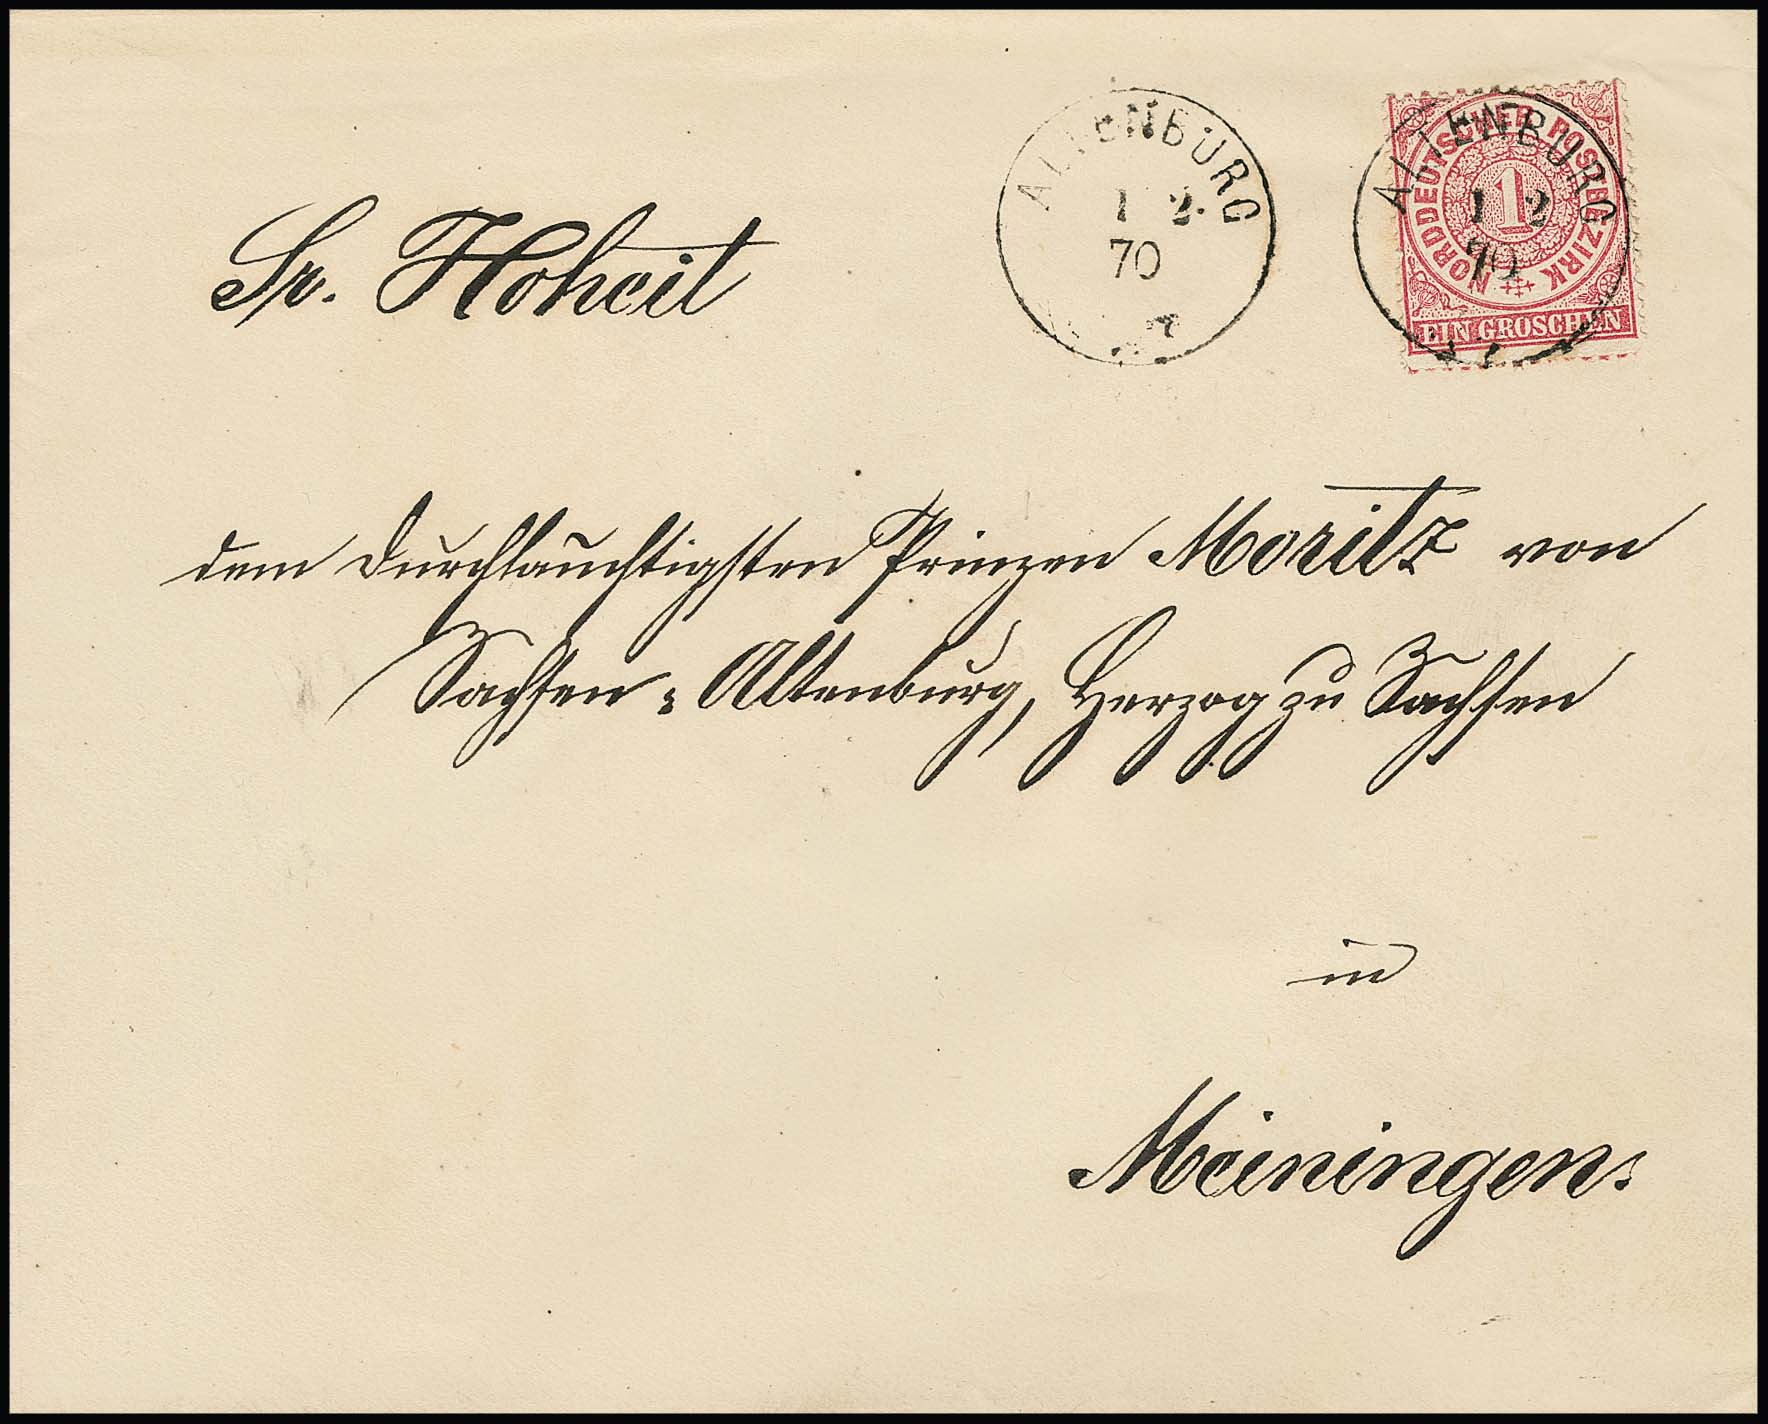 ALTENBURG
1 2
70
NORDDEUTSCHER POSTBEZIRK
1
EIN GROSCHEN
ALTENBURG
1 2
70
Sr. Hoheit
dem Durchlauchtigsten Prinzen Moritz von
Sachsen-Altenburg, Herzog zu Sachsen
in
Meiningen.